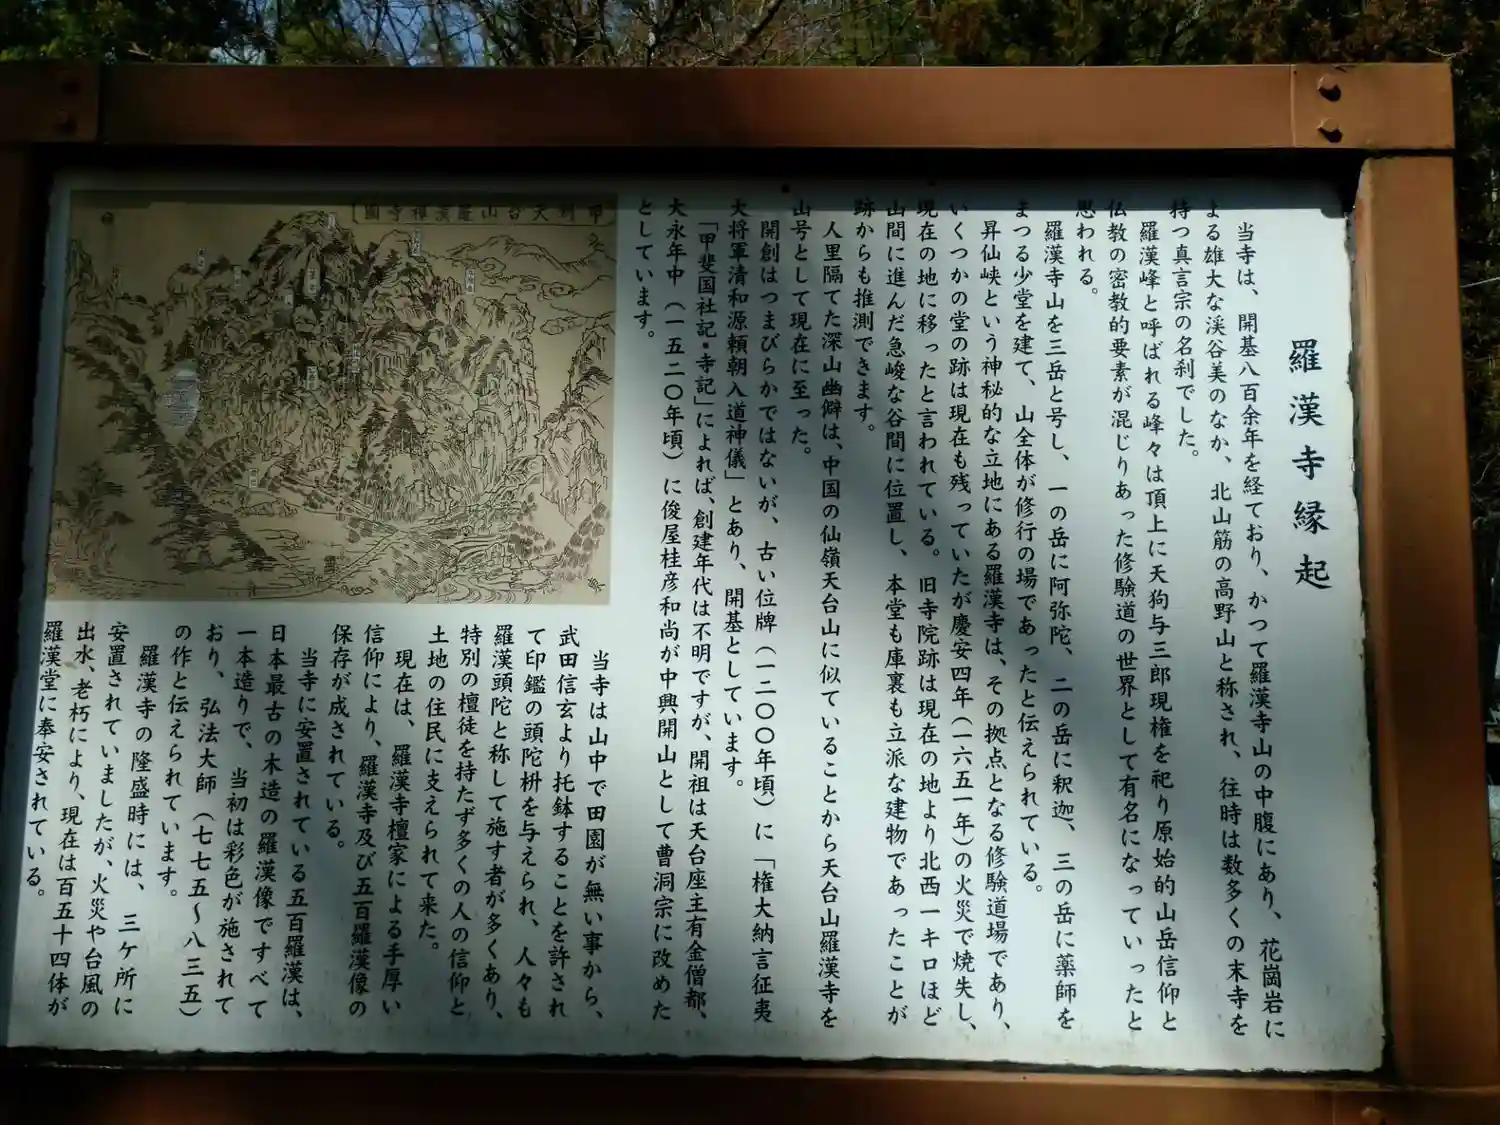 羅漢寺縁起
当寺は、開基八百余年を経ており、かつて羅漢寺山の中腹にあり、花崗岩に
よる雄大な渓谷美のなか、北山筋の高野山と称され、往時は数多くの末寺を
持つ真言宗の名刹でした。
羅漢峰と呼ばれる峰々は頂上に天狗与三郎現権を祀り原始的山岳信仰と
仏教の密教的要素が混じりあった修験道の世界として有名になっていったと
思われる。
羅漢寺山を三岳と号し、一の岳に阿弥陀、二の岳に釈迦、三の岳に薬師を
まつる少堂を建て、山全体が修行の場であったと伝えられている。
昇仙峡という神秘的な立地にある羅漢寺は、その拠点となる修験道場であり、
いくつかの堂の跡は現在も残っていたが慶安四年(一六五一年)の火災で焼失し、
現在の地に移ったと言われている。旧寺院跡は現在の地より北西一キロほど
山間に進んだ急峻な谷間に位置し、本堂も庫裏も立派な建物であったことが
跡からも推測できます。
人里隔てた深山幽僻は、中国の仙嶺天台山に似ていることから天台山羅漢寺を
山号として現在に至った。
開創はつまびらかではないが、古い位牌(一二〇〇年頃)に「権大納言征夷
大将軍清和源頼朝入道神儀」とあり、開基としています。
「甲斐国社記・寺記」によれば、創建年代は不明ですが、開祖は天台座主有金僧都、
大永年中(一五二〇年頃)に俊屋桂彦和尚が中興開山として曹洞宗に改めた
としています。
甲州天台山羅漢禅寺図
当寺は山中で田園が無い事から、
武田信玄より托鉢することを許され
て印鑑の頭陀枡を与えられ、人々も
羅漢頭陀と称して施す者が多くあり、
特別の檀徒を持たず多くの人の信仰と
土地の住民に支えられて来た。
現在は、羅漢寺檀家による手厚い
信仰により、羅漢寺及び五百羅漢像の
保存が成されている。
当寺に安置されている五百羅漢は、
日本最古の木造の羅漢像ですべて
一本造りで、当初は彩色が施されて
おり、弘法大師(七七五〜八三五)
の作と伝えられています。
羅漢寺の隆盛時には、三ケ所に
安置されていましたが、火災や台風の
出水、老朽により、現在は百五十四体が
羅漢堂に奉安されている。